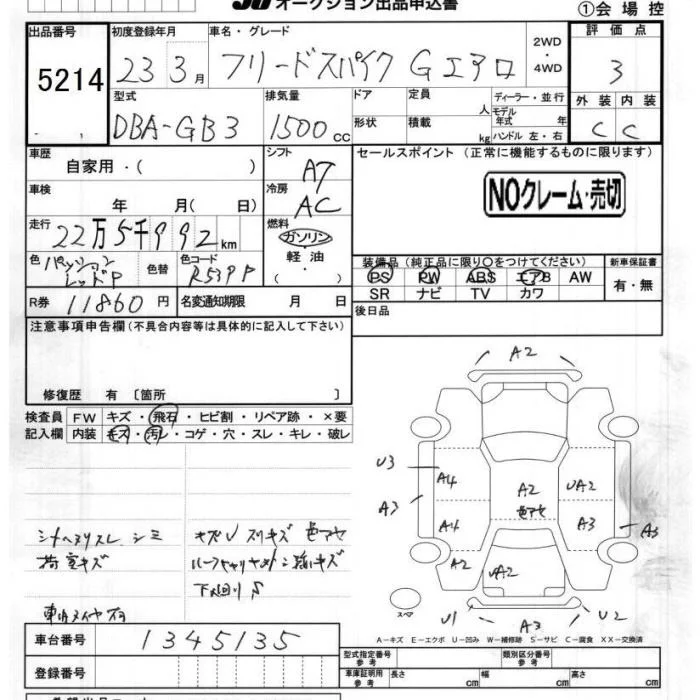 オークション出品申込書
①会場控
出品番号 初度登録年月 車名・グレード 評価点
5214 23 3月 フリードスパイク Gエアロ 2WD・4WD 3
型式 排気量 ドア 定員 人 ディーラー・並行 外装 内装
DBA-GB3 1500cc 形状 積載 kg モデル年式 年 ハンドル 左・右 C C
車歴 自家用・( ) シフト AT
セールスポイント(正常に機能するものに限ります)
車検 年 月( 日) 冷房 AC
NOクレーム・売切
走行 22万5千992km 燃料 ガソリン・軽油・( )
色 パッションレッドP 色替 色コード R539P
装備品(純正品に限り○をつけてください) 新車保証書
PS PW ABS エアB AW 有・無
SR ナビ TV カワ
R券 11860円 名変通知期限 月 日
後日品
注意事項申告欄(不具合内容等は具体的に記入して下さい)
修復歴 有〔箇所 〕
検査員記入欄 FW キズ・飛石・ヒビ割・リペア跡・×要
内装 キズ・汚レ・コゲ・穴・スレ・キレ・破レ
A2
U3 A4 A2 UA2
A3 A4 色アセ A3 A3
A2 UA2
スペア U1 A3 U2
シートヘタリスレ シミ
荷室キズ
キズU スリキズ 色アセ
下廻りS
車台番号 1345135
登録番号
A-キズ E-エクボ U-凹み W-補修跡 S-サビ C-腐食 XX-交換済
型式指定番号 参考 類別区分番号 参考
車庫証明用 参考 長さ cm 幅 cm 高さ cm